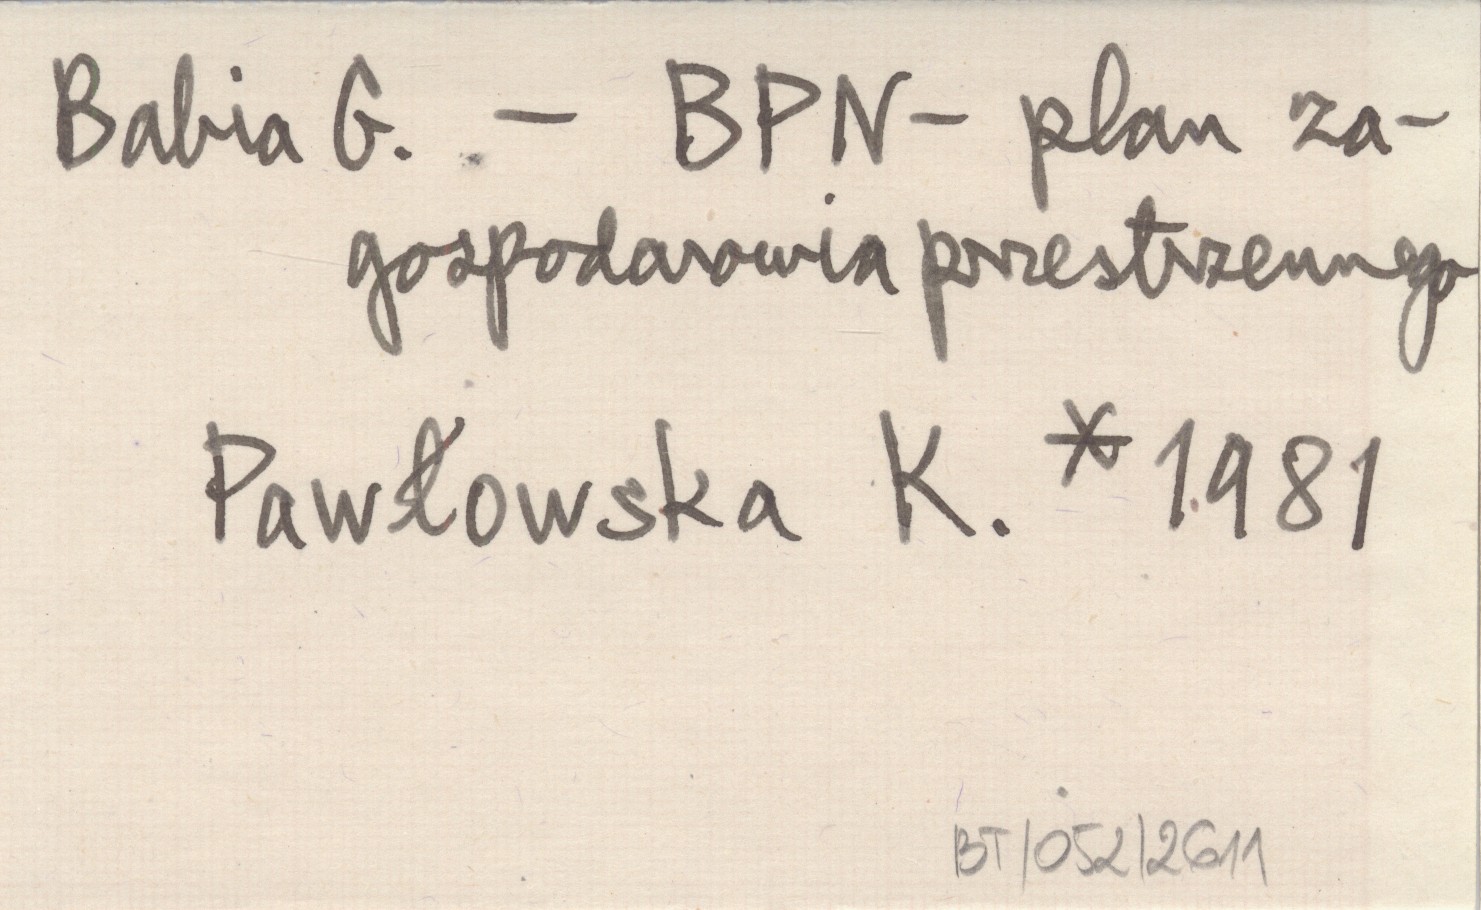 Babia G. – BPN – plan za-
gospodarowia przestrzennego
Pawłowska K. * 1981
BT/052/2611